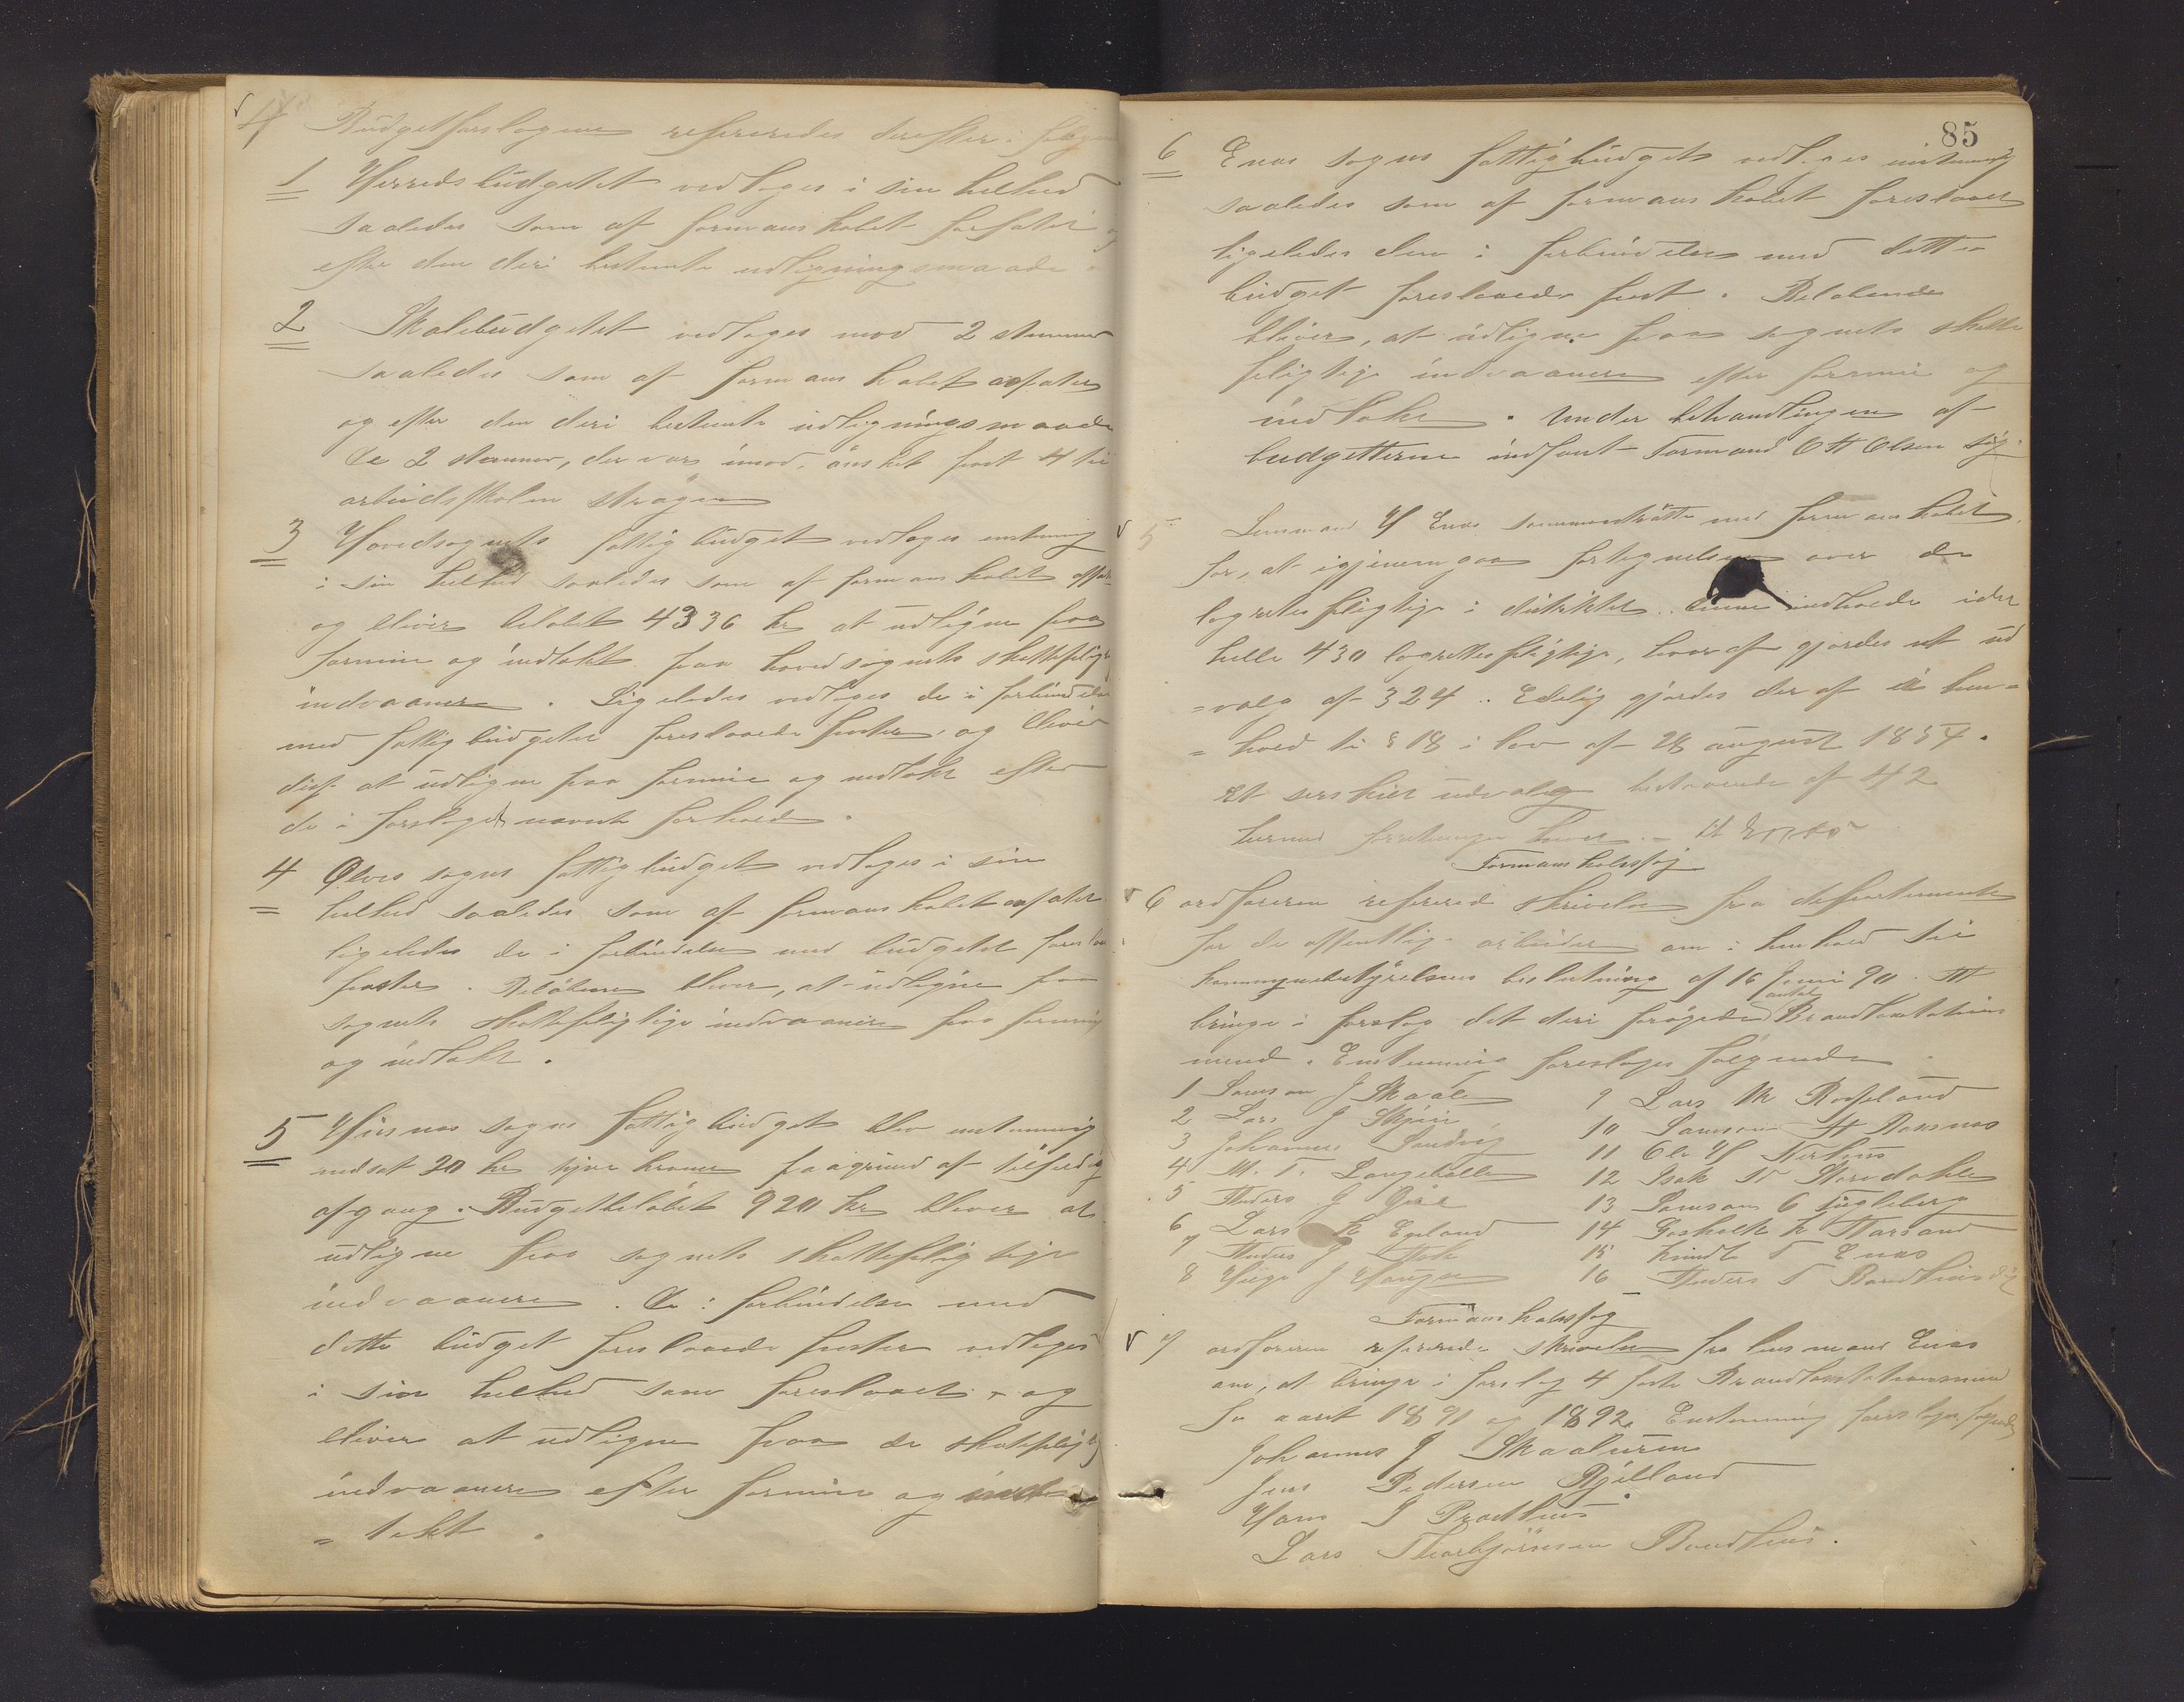 4 Budgetforslagene refereredes derefter i følgen
1 Herredsbudgettet vedtoges i sin helhed
saaledes som af formanskabet forfatet og
efter den deri bestemte udligningsmaade.
2 Skolebudgettet vedtoges mod 2 stemmer
saaledes som af formanskabet affatet
og efter den deri bestemte udligningsmaade
De 2 stemmer, der var imod, ønsket post 4 til
arbeidsskolen strøgen
3 Hovedsognets fattigbudget vedtoges enstemmig
i sin helhed saaledes som af formanskabet
og bliver beløbet 4336 kr at udligne paa
formue og indtækt paa hovedsognets skattepligt
indvaanere. Ligeledes vedtoges de i forbindelse
med fattigbudgetet foreslaaede poster, og bliver
at udligne paa formue og indtækt efter
de i forslaget nævnte forhold.
4 Ølves sogns fattigbudget vedtoges i sin
helhed saaledes som af formanskabet affatet
ligeledes de i forbindelse med budgetet foreslaa
poster. Beløbene bliver, at udligne paa
sognets skattepligtige indvaanere paa formue
og indtækt.
5 Husnes sogns fattigbudget blev enstemmig
nedsat 20 kr tyve kroner paa grund af tilfældig
afgang. Budgetbeløbet 920 kr bliver at
udligne paa sognets skattepligtige
indvaanere. De i forbindelse med
dette budget foreslaaede poster vedtoges
i sin helhed som foreslaaet, og
bliver at udligne paa de skattepligtig
indvaanere efter formue og ind
= tekt.
85
6 Enæs sogns fattigbudget vedtoges enstemmig
saaledes som af formanskabet foreslaaet
ligeledes den i forbindelse med dette
budget foreslaaede post. Beløbene
bliver, at udligne paa sognets skatte
pligtige indvaanere efter formue og
indtækt. Under behandlingen af
budgetterne indfant Formand O H Olsen sig.
5 Lensmand H Enæs sammentraatte med formanskabet
for, at igjennemgaa fortegnelsen over de
lagrettespligtige i distriktet. Denne indholdt i det
hele 430 lagrettespligtige, hvoraf gjordes et ud
= valg af 324. Endelig gjordes deraf i hen=
= hold til § 18 i lov af 28 august 1854.
Et særskilt udvalg bestaaende af 42
Formanskabssag
6 ordføreren refererede skrivelse fra departementet
for de offentlige arbeider om i henhold til
kommunebestyrelsens beslutning af 16 Juni 90. At
bringe i forslag det deri forøgede antal Brandtaxations
mænd. Enstemmig foresloges følgende
1 Samson J Skaale
2 Lars J Skjeie
3 Johannes Sandvig
4 M. T. Langeballe
5 Anders J Øie
6 Lars K Egeland
7 Anders J
8 Helge J Haugen
9 Lars M Røsseland
10 Samson H Bossnæs
11 Ole H
12 Isak N
13 Samson O Fugleberg
14 Godskalk K Aarsand
15 Knudt T Enæs
16 Anders T Bondhus
Formanskabssag
7 ordføreren refererede skrivelse fra lensmand Enæs
om, at bringe i forslag 4 faste Brandtaxtationsmænd
for aaret 1891 og 1892. Enstemmig foresloges følgende
Johannes J Skaaluren
Jens Pedersen Bjelland
Hans J Prosthus
Lars Thorbjørnsen Bondhus.